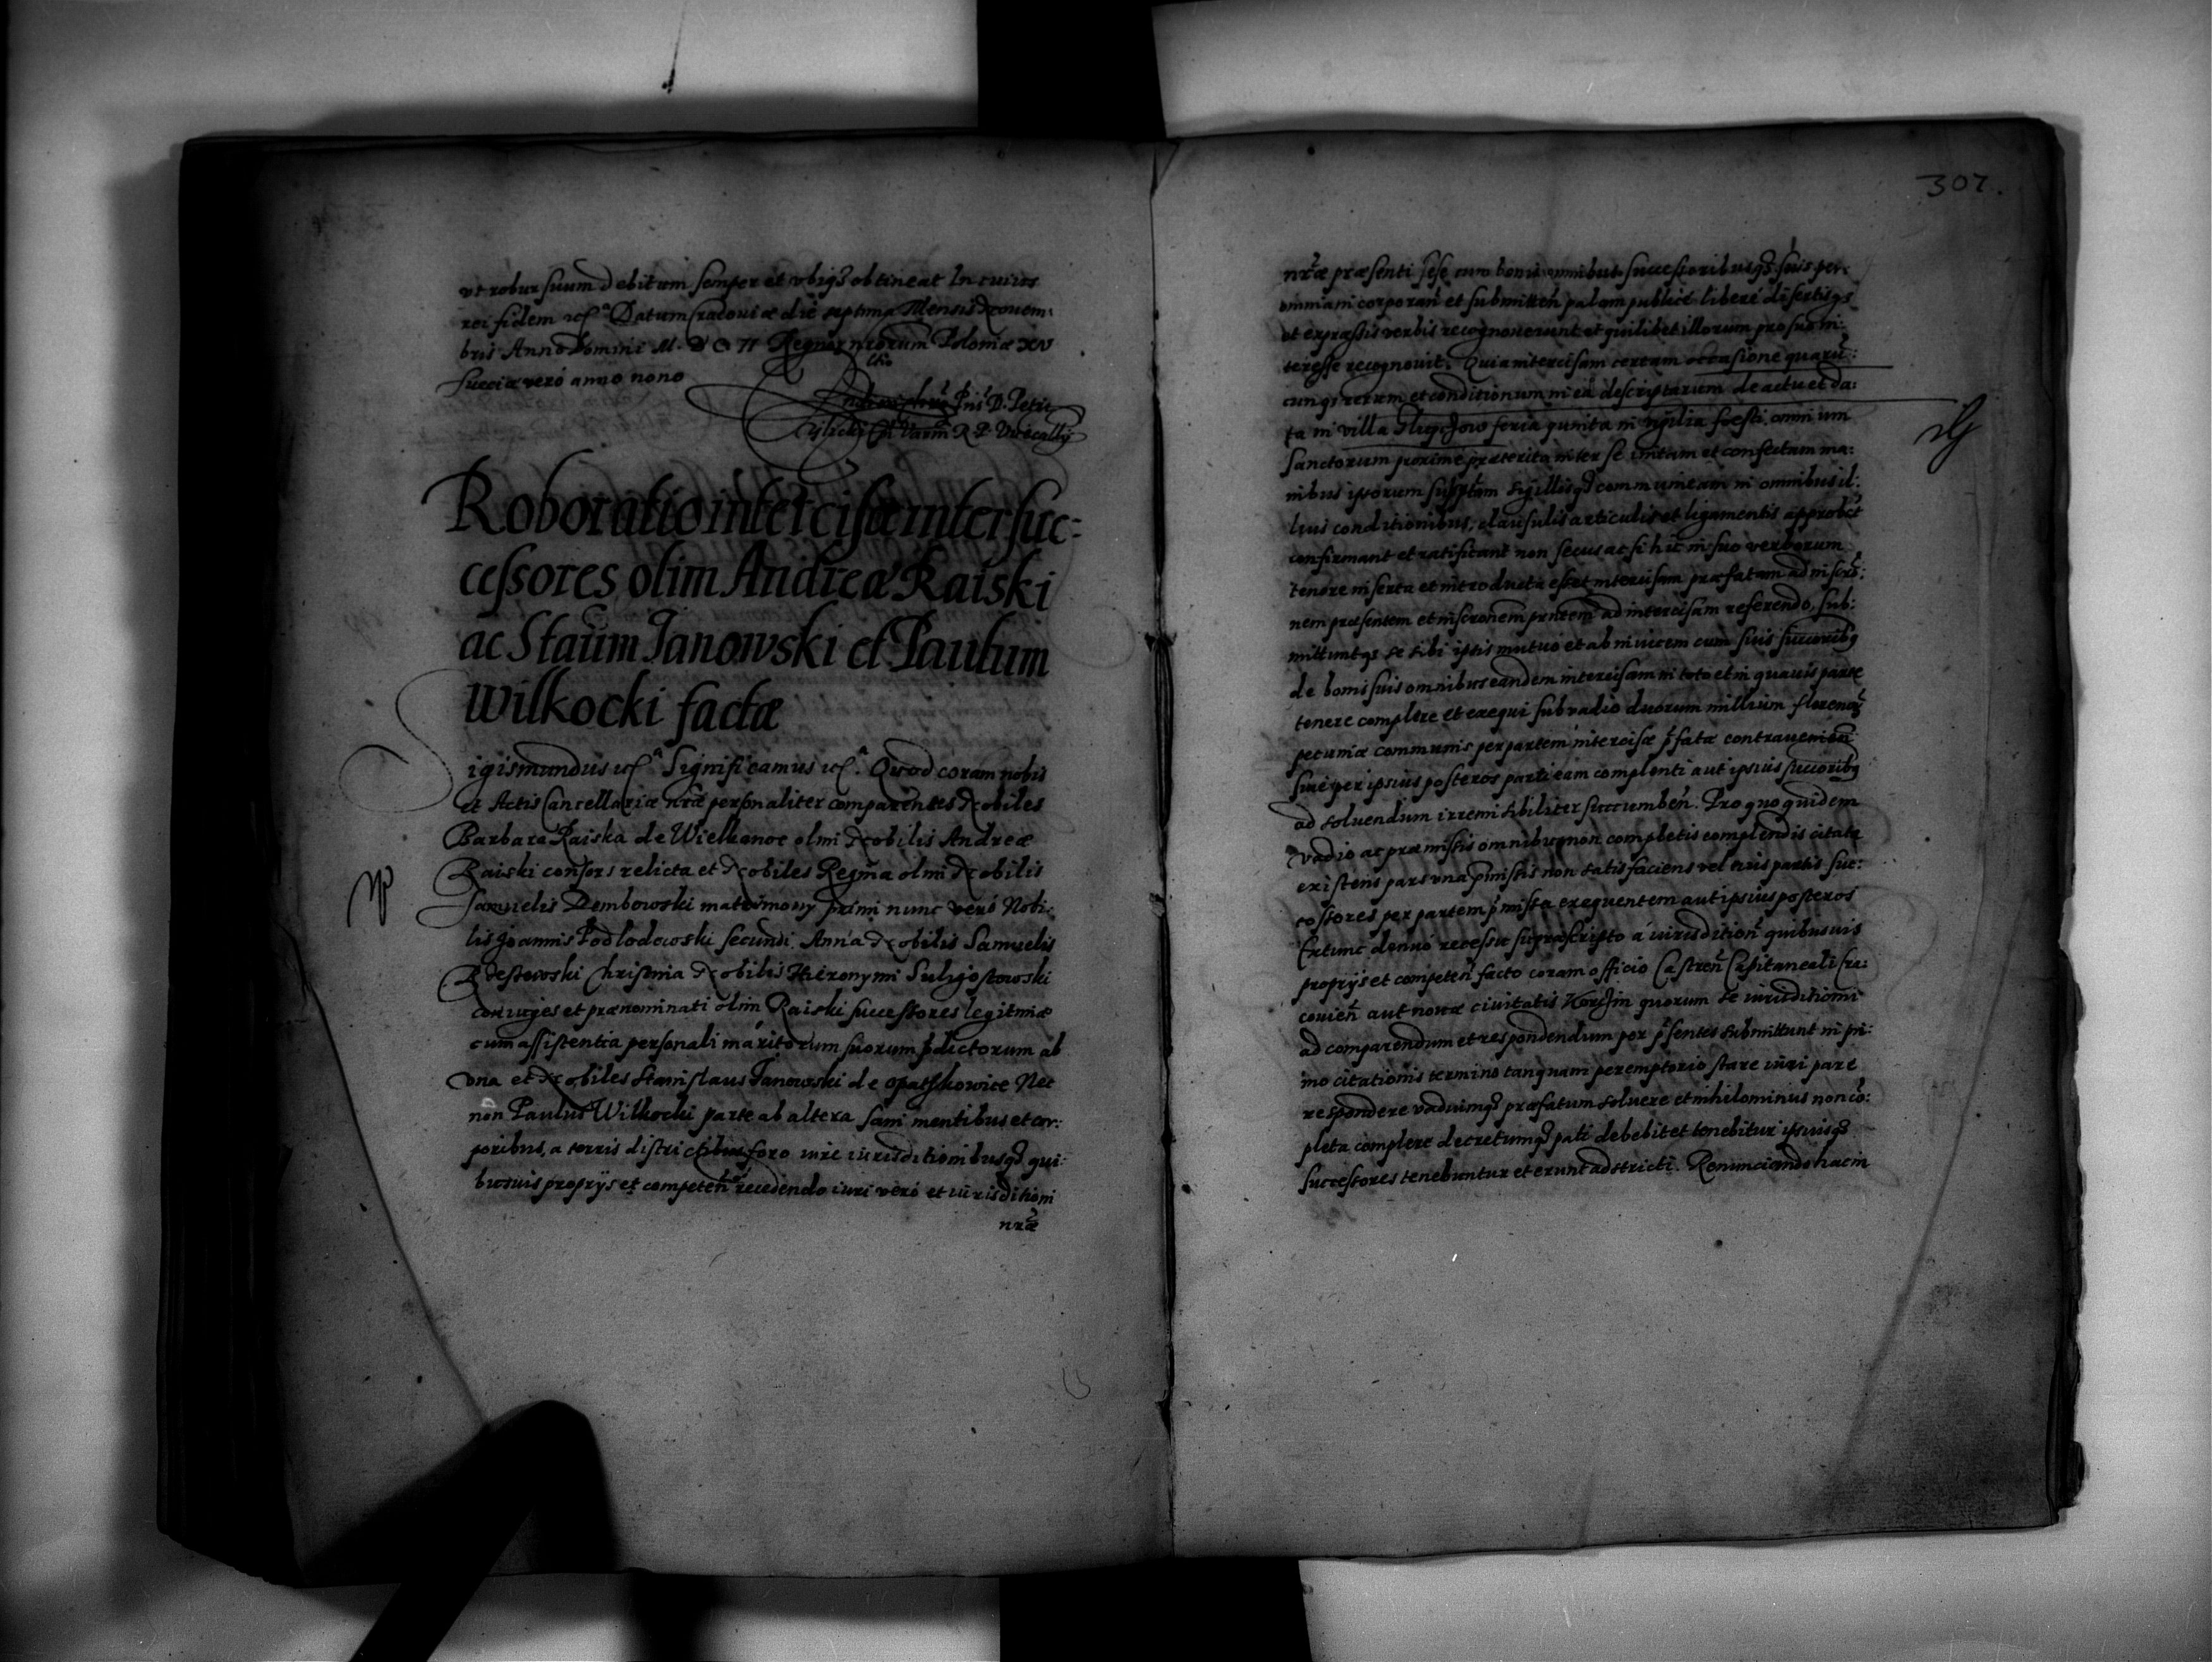 ut robur suum debitum semper et ubiqz obtineat In cuius
rei fidem etc Datum Cracoviæ die septima Mensis Novem:
bris Anno Domini M. D C II Regnorum nrorum Poloniæ XV
Sueciæ verò anno nono
Pni D. Petri
Tylicki R P Vicecallÿ
Roboratio intercisæ inter suc:
cessores olim Andreæ Raiski
ac Staūm Janowski et Paulum
Wilkocki factæ
Sigismundus etc Significamus etc. Quod coram nobis
et Actis Cancellariæ nræ personaliter comparentes Nobiles
Barbara Raiska de Wielkanoc olim Nobilis Andreæ
Raiski consors relicta et Nobiles Regina olim Nobilis
Samuelis Dembowski matrimony primi nunc verò Nobi:
lis Joannis Podlodowski secundi. Anna Nobilis Samuelis
Christinia Nobilis Hieronymi Suligostowski
coniuges et prænominati olim Raiski successores legitimæ
cum assistentia personali maritorum suorum pdictorum ab
una et Nobiles Stanislaus Janowski de Opatkowice Nec
non Paulus Wilkocki parte ab altera sani mentibus et cor:
poribus, a terris districtibus foro iure iurisditionibusqz qui:
busuis proprÿs et competeñ recedendo iuri verò et iurisditioni
nræ
307.
nræ præsenti sese cum bonis omnibus successoribusqz suis per
omnia incorporañ et submitteñ palam publicè liberè disertisqz
et expressis verbis recognoverunt et quilibet illorum pro suo in:
teresse recognovit. Quia intercisam certam occasione quarū:
cunqz rerum et conditionum in ea descriptarum de actu et da:
ta in villa feria quinta in vigilia festi omnium
Sanctorum proxime præterita inter se initam et confectam ma:
nibus ipsorum subsptam sigillisqz communitam in omnibus il:
lius conditionibus, clausulis articulis et ligamentis approbāt
confirmant et ratificant non secus ac si hic in suo verborum
tenore inserta et introducta esset intercisam præfatam ad inscrō:
nem præsentem et inscronem pntem ad intercisam referendo, sub:
mittuntqz se sibi ipsis mutuo et ab invicem cum suis succoribq
de bonis suis omnibus eandem intercisam in toto et in quavis parte
tenere complere et exequi sub vadio duorum millium florenorq
pecuniæ communis per partem intercisæ pfatæ contravenien
sive per ipsius posteros parti eam complenti aut ipsius succoribq
ad solvendum irremisibiliter succumbeñ. Pro quo quidem
vadio ac præmissis omnibus non completis complendis citata
existens pars una pmissis non satisfaciens vel eius partis suc:
cessores per partem pmissa exequentem aut ipsius posteros
Extunc denuò recessu suprascripto a iurisditioñ quibusvis
proprÿs et competeñ facto coram officio Castreñ Capitaneali Cra:
covieñ aut novæ civitatis Korczin quorum se iurisditioni
ad comparendum et respondendum per psentes submittunt in pri:
mo citationis termino tanquam peremptorio stare iuri pare
respondere vadiumqz præfatum solvere et nihilominus non cō:
pleta complere decretumqz pati debebit et tenebitur ipsiusqz
successores tenebuntur et erunt adstricti. Renunciando hac in